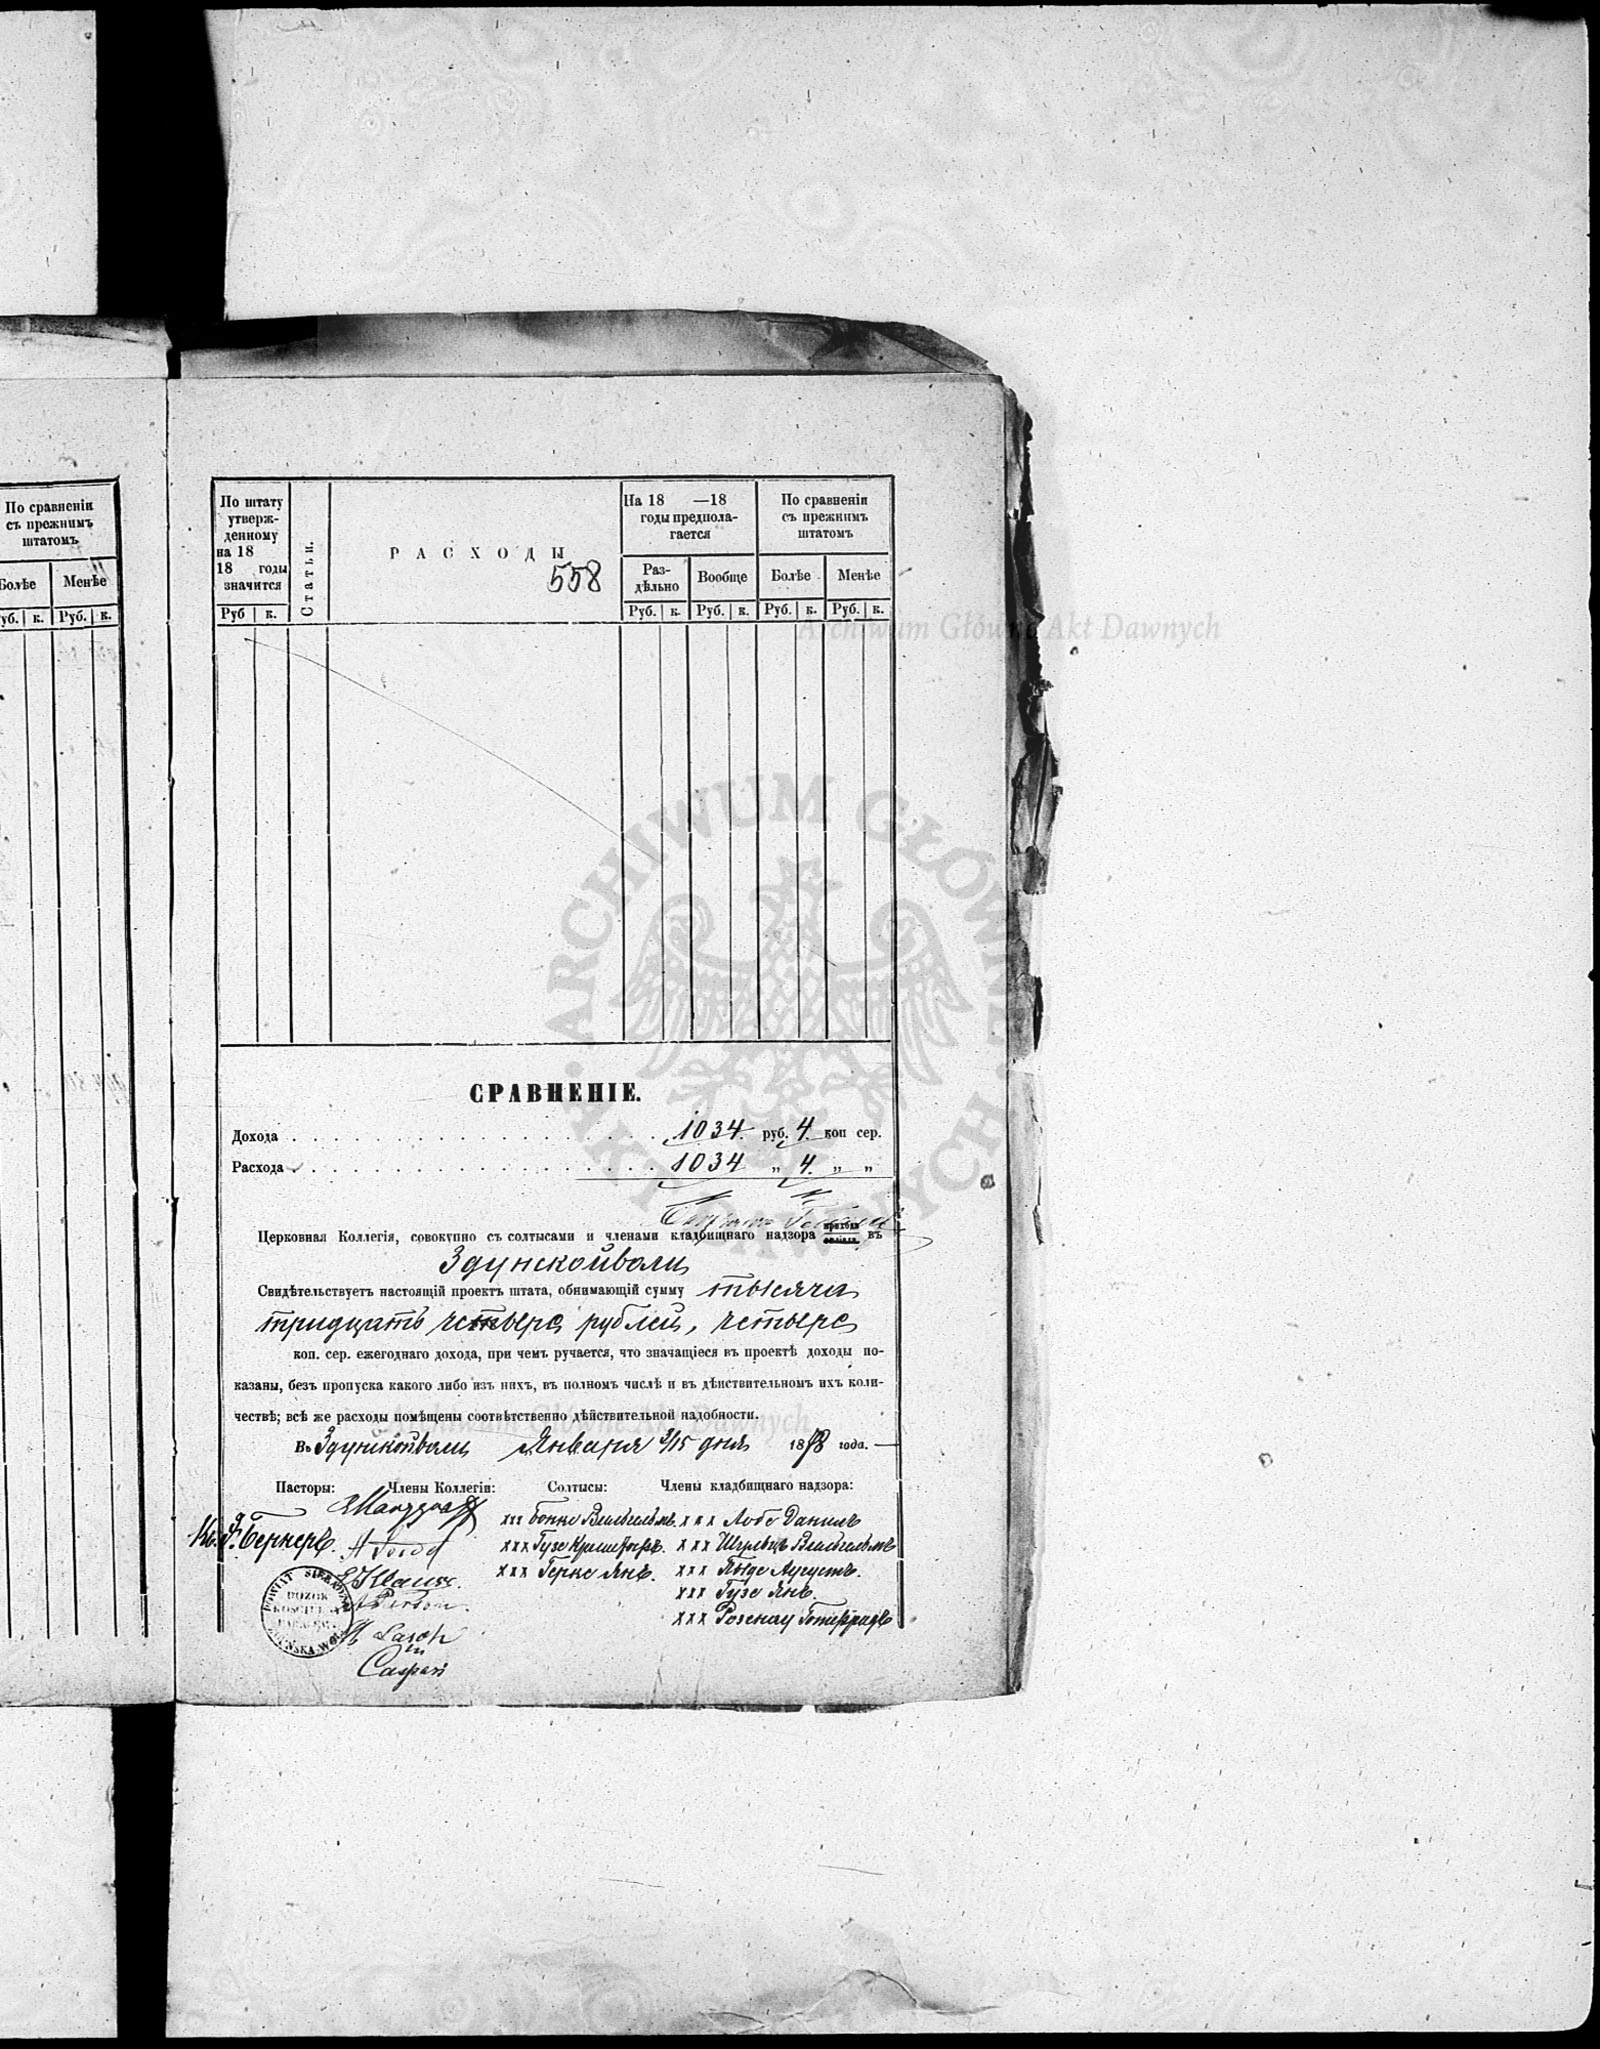 По сравненіи
съ прежнимъ
штатомъ
Болѣе Менѣе
Руб. к. Руб. к.
По штату
утверж-
денному
на 18
18 годы
значится
Руб к.
Статьи.
РАСХОДЫ
558
На 18 —18
годы предпола-
гается
Раз-
дѣльно
Вообще
Руб. к. Руб. к.
По сравненіи
съ прежнимъ
штатомъ
Болѣе Менѣе
Руб. к. Руб. к.
Archiwum Główne Akt Dawnych
ARCHIWUM GŁÓWNE AKT DAWNYCH
СРАВНЕНІЕ.
Дохода . . . . . 1034 руб. 4. коп сер.
Расхода . . . . . 1034 „ 4. „ „
Церковная Коллегія, совокупно съ солтысами и членами кладбищнаго надзора прихода въ
Здунскойволи
Свидѣтельствуетъ настоящій проектъ штата, обнимающій сумму тысяча
тридцать четыре рублей, четыре
коп. сер. ежегоднаго дохода, при чемъ ручается, что значащіеся въ проектѣ доходы по-
казаны, безъ пропуска какого либо изъ нихъ, въ полномъ числѣ и въ дѣйствительномъ ихъ коли-
чествѣ; всѣ же расходы помѣщены соотвѣтственно дѣйствительной надобности.
Archiwum Główne Akt Dawnych
Въ Здунскойволи Января 3/15 дня 1878 года. —
Пасторы: Члены Коллегіи: Солтысы: Члены кладбищнаго надзора:
Бернеръ.
xxx Вильгельмъ. xxx Лобе Данилъ
xxx Гузе xxx Шульцъ Вильгельмъ
xxx Герке Янъ. xxx Августъ.
xxx Гузе Янъ.
xxx Розенау Готфридъ
EKlause.
A Person.
Lasch
Caspari
POWIAT SIERADZKI
DOZOR
KOSCIELNY